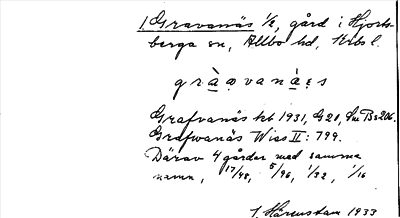 1. Gravanäs 1/2, gård i Hjorts-
berga sn, Allbo hd, Krbs l.
gràa̧vanáȩs
Grafvanäs kb 1931, G 20, Sm Bs 206.
Grafwanäs Wies II: 799.
Därav 4 gårder med samma
namn, 17/48, 5/96, 1/32, 1/16
J. Härenstam 1933